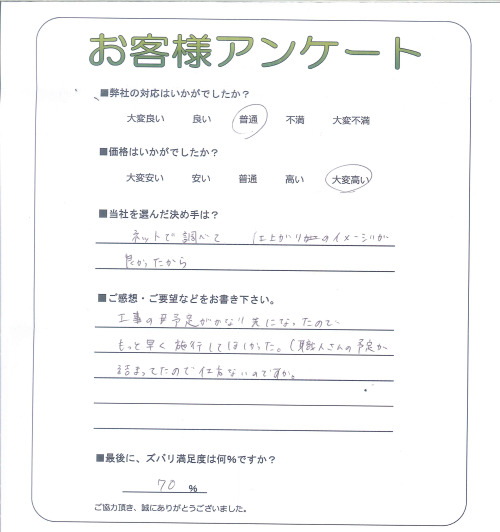 お客様アンケート
■弊社の対応はいかがでしたか？
大変良い 良い 普通 不満 大変不満
■価格はいかがでしたか？
大変安い 安い 普通 高い 大変高い
■当社を選んだ決め手は？
ネットで調べて 仕上がりのイメージが
良かったから
■ご感想・ご要望などをお書き下さい。
工事の予定がかなり先になったので
もっと早く施行してほしかった。(職人さんの予定が
詰まってたので仕方ないのですが。
■最後に、ズバリ満足度は何%ですか？
70 %
ご協力頂き、誠にありがとうございました。